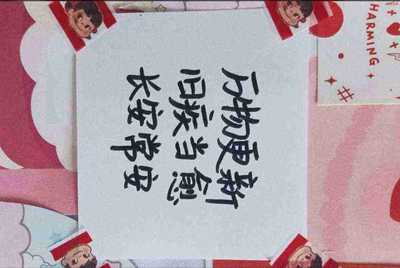 万物更新
旧疾当愈
长安常安
HARMING